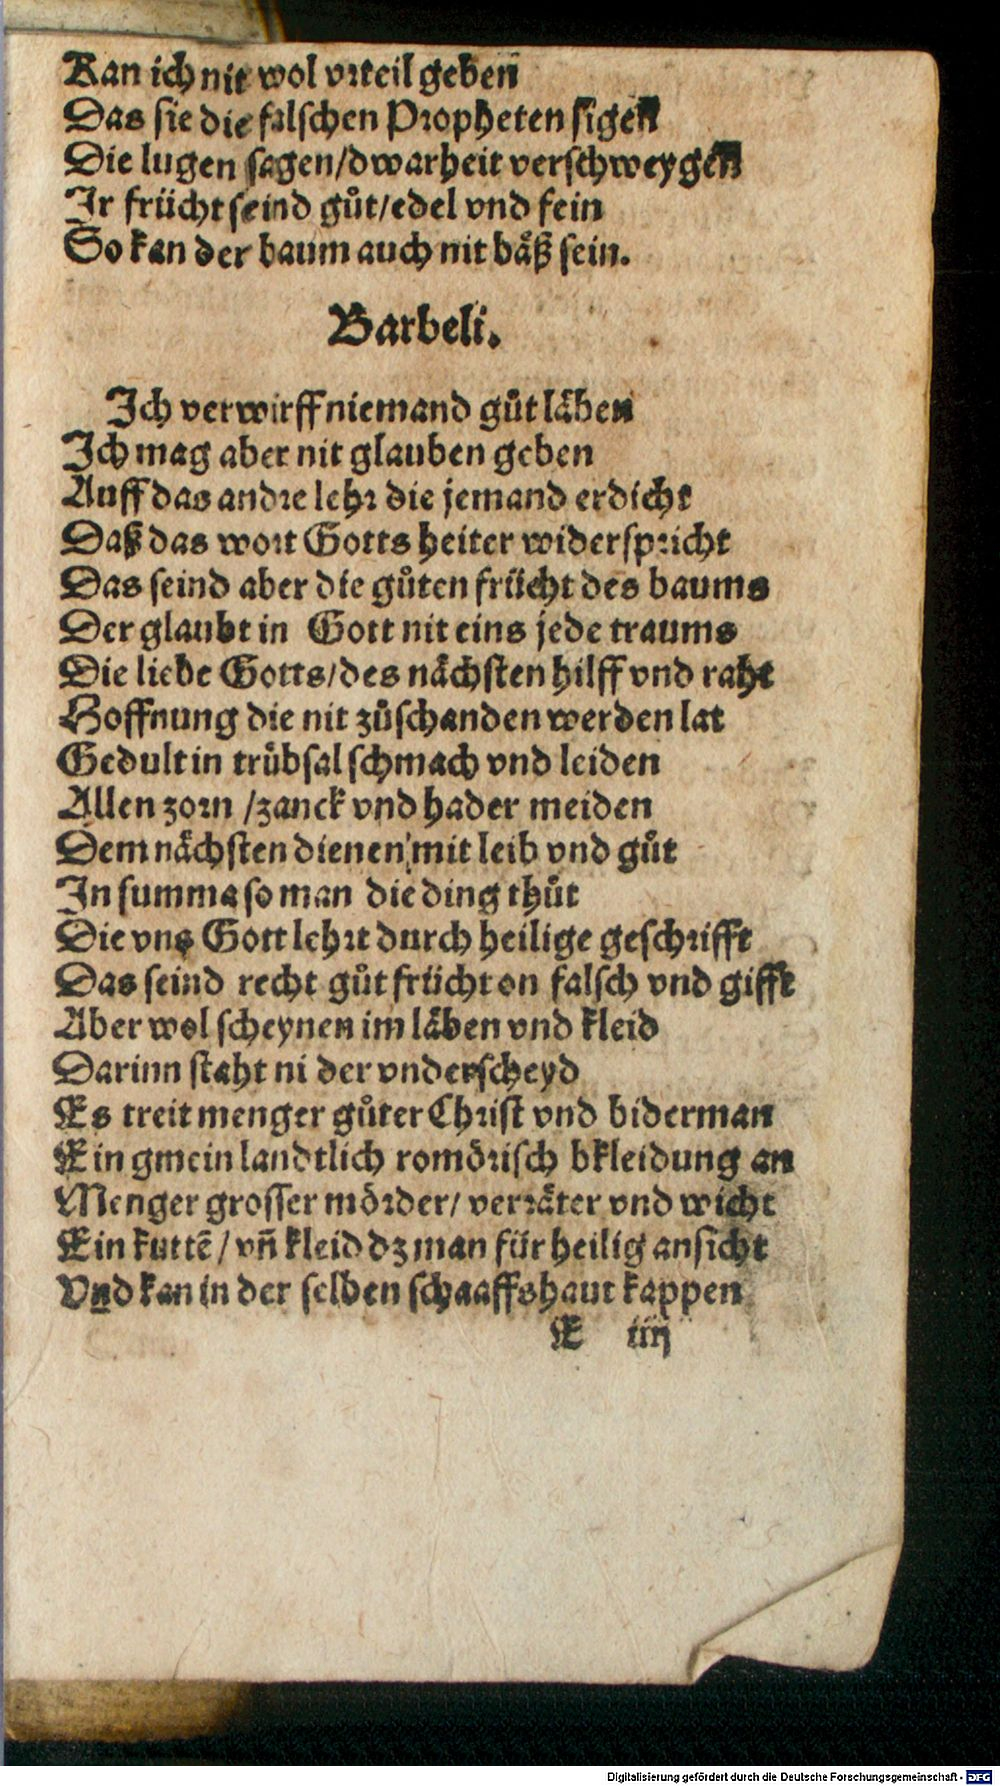 Kan ich nit wol vrteil geben
Das sie die falschen Propheten sigen
Die lugen sagen/dwarheit verschweygen
Ir frücht seind gůt/edel vnd fein
So kan der baum auch nit bäß sein.
Barbeli.
Ich verwirff niemand gůt läben
Ich mag aber nit glauben geben
Auff das andre lehr die jemand erdicht
Daß das wort Gotts heiter widerspricht
Das seind aber die gůten frücht des baums
Der glaubt in Gott nit eins jede traums
Die liebe Gotts/des nächsten hilff vnd raht
Hoffnung die nit zůschanden werden lat
Gedult in trübsal schmach vnd leiden
Allen zorn /zanck vnd hader meiden
Dem nächsten dienen mit leib vnd gůt
In summa so man die ding thůt
Die vns Gott lehrt durch heilige geschrifft
Das seind recht gůt frücht on falsch vnd gifft
Aber wol scheynen im läben vnd kleid
Darinn staht ni der vnderscheyd
Es treit menger gůter Christ vnd biderman
Ein gmein landtlich romörisch bkleidung an
Menger grosser mörder/ verräter vnd wicht
Ein kuttē/ vñ kleid dz man für heilig ansicht
Vnd kan in der selben schaaffshaut kappen
E iiij
Digitalisierung gefördert durch die Deutsche Forschungsgemeinschaft - DFG